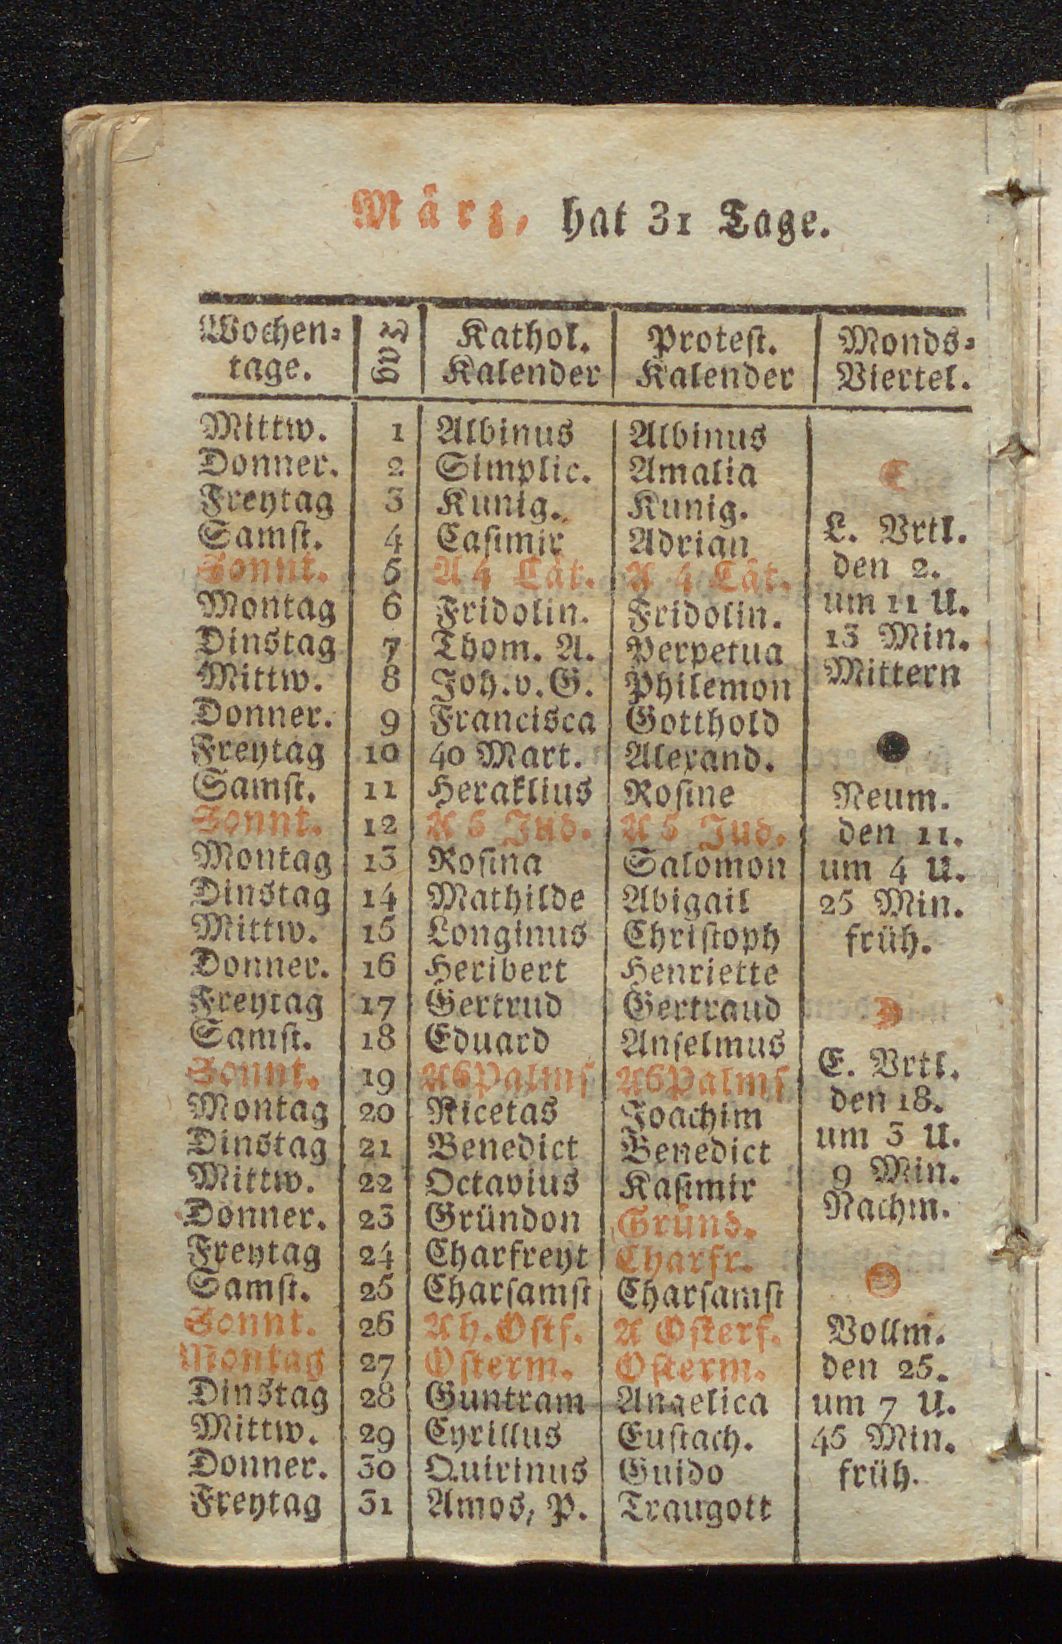 März, hat 31 Tage.
Wochen= Kathol. Protest. Monds=
tage. Kalender Kalender Viertel.
Mittw. 1 Albinus Albinus
Donner. 2 Simplic. Amalia
Freytag 3 Kunig. Kunig.
Samst. 4 Casimir Adrian
Sonnt. 5 A 4 Lät. A 4 Lät.
Montag 6 Fridolin. Fridolin.
Dinstag 7 Thom. A. Perpetua
Mittw. 8 Joh. v. G. Philemon
Donner. 9 Francisca Gotthold
Freytag 10 40 Mart. Alexand.
Samst. 11 Heraklius Rosine
Sonnt. 12 A 5 Jud. A 5 Jud.
Montag 13 Rosina Salomon
Dinstag 14 Mathilde Abigail
Mittw. 15 Longinus Christoph
Donner. 16 Heribert Henriette
Freytag 17 Gertrud Gertraud
Samst. 18 Eduard Anselmus
Sonnt. 19 A6Palms A6Palms
Montag 20 Nicetas Joachim
Dinstag 21 Benedict Benedict
Mittw. 22 Octavius Kasimir
Donner. 23 Gründon Gründ.
Freytag 24 Charfreyt Charfr.
Samst. 25 Charsamst Charsamst
Sonnt. 26 A h. Ostf. A Osterf.
Montag 27 Osterm. Osterm.
Dinstag 28 Guntram Angelica
Mittw. 29 Cyrillus Eustach.
Donner. 30 Quirinus Guido
Freytag 31 Amos, P. Traugott
L. Vrtl.
den 2.
um 11 U.
13 Min.
Mittern
Neum.
den 11.
um 4 U.
25 Min.
früh.
E. Vrtl.
den 18.
um 3 U.
9 Min.
Nachm.
Vollm.
den 25.
um 7 U.
45 Min.
früh.